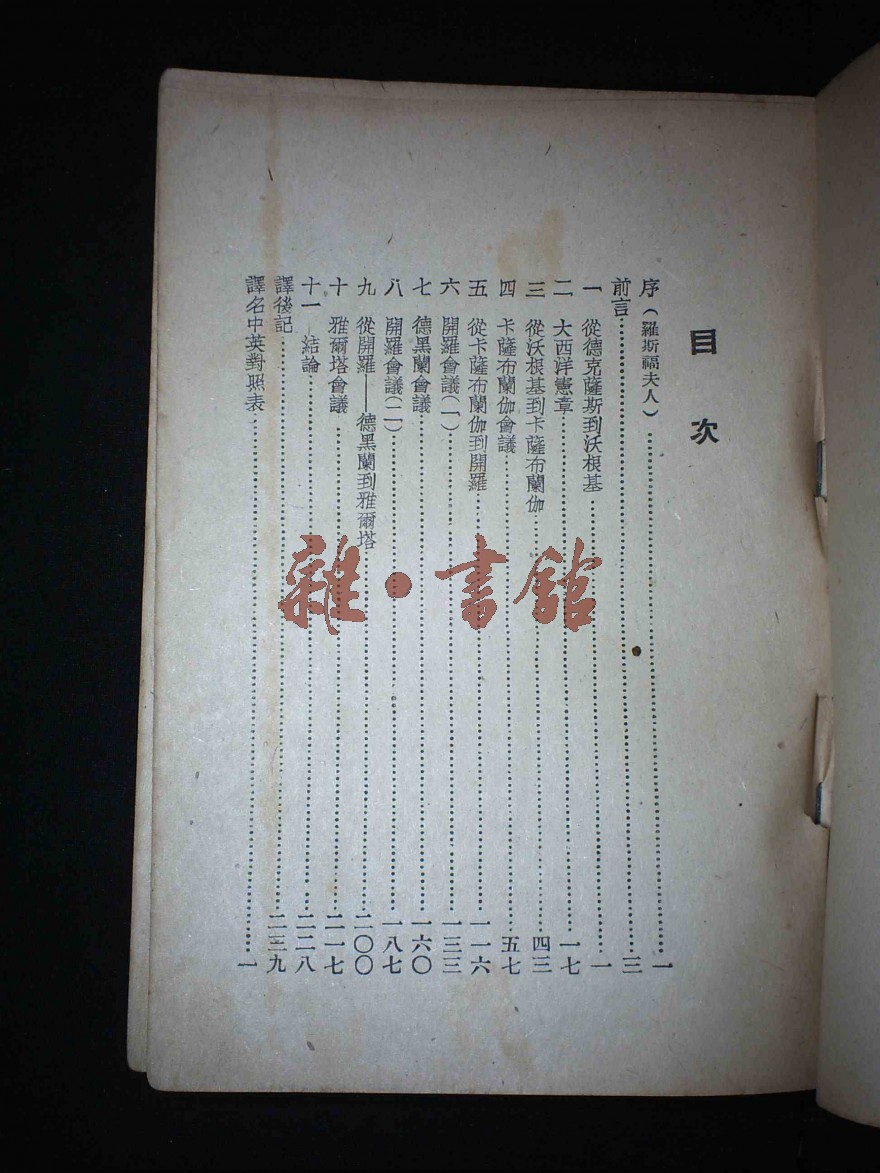 目次
序（羅斯福夫人）……一
前言……三
一 從德克薩斯到沃根基……一
二 大西洋憲章……一七
三 從沃根基到卡薩布蘭伽……四三
四 卡薩布蘭伽會議……五七
五 從卡薩布蘭伽到開羅……一一六
六 開羅會議（一）……一三三
七 德黑蘭會議……一六〇
八 開羅會議（二）……一八七
九 從開羅——德黑蘭到雅爾塔……二〇〇
十 雅爾塔會議……二一七
十一 結論……二二八
譯後記……二三九
譯名中英對照表……一
雜·書館